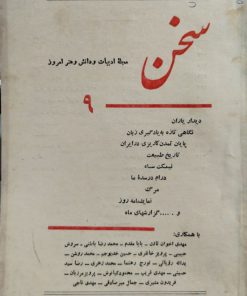 سخن
مجلهٔ ادبیات و دانش و هنر امروز
۹
دیدار یاران
نگاهی تازه به یادگیری زبان
پایان تمدن کاریزی در ایران
تاریخ طبیعت
نیمکت سیاه
درام در سدهٔ ما
مرگ
نمایشنامه روز
و ..... گزارشهای ماه
با همکاری:
مهدی اخوان ثالث ـ بابا مقدم ـ محمدرضا باطنی ـ سروش
حبیبی ـ پرویز خائفی ـ حسین خدیوجم ـ محمد روشن ـ
یدالله رؤیائی ـ تورج رهنما ـ محمد زهری ـ رضا سید
حسینی ـ مهدی غریب ـ محمود کیانوش ـ پرویز مرزبان ـ
فریدون مشیری ـ جمال میرصادقی ـ مهدی ناجی